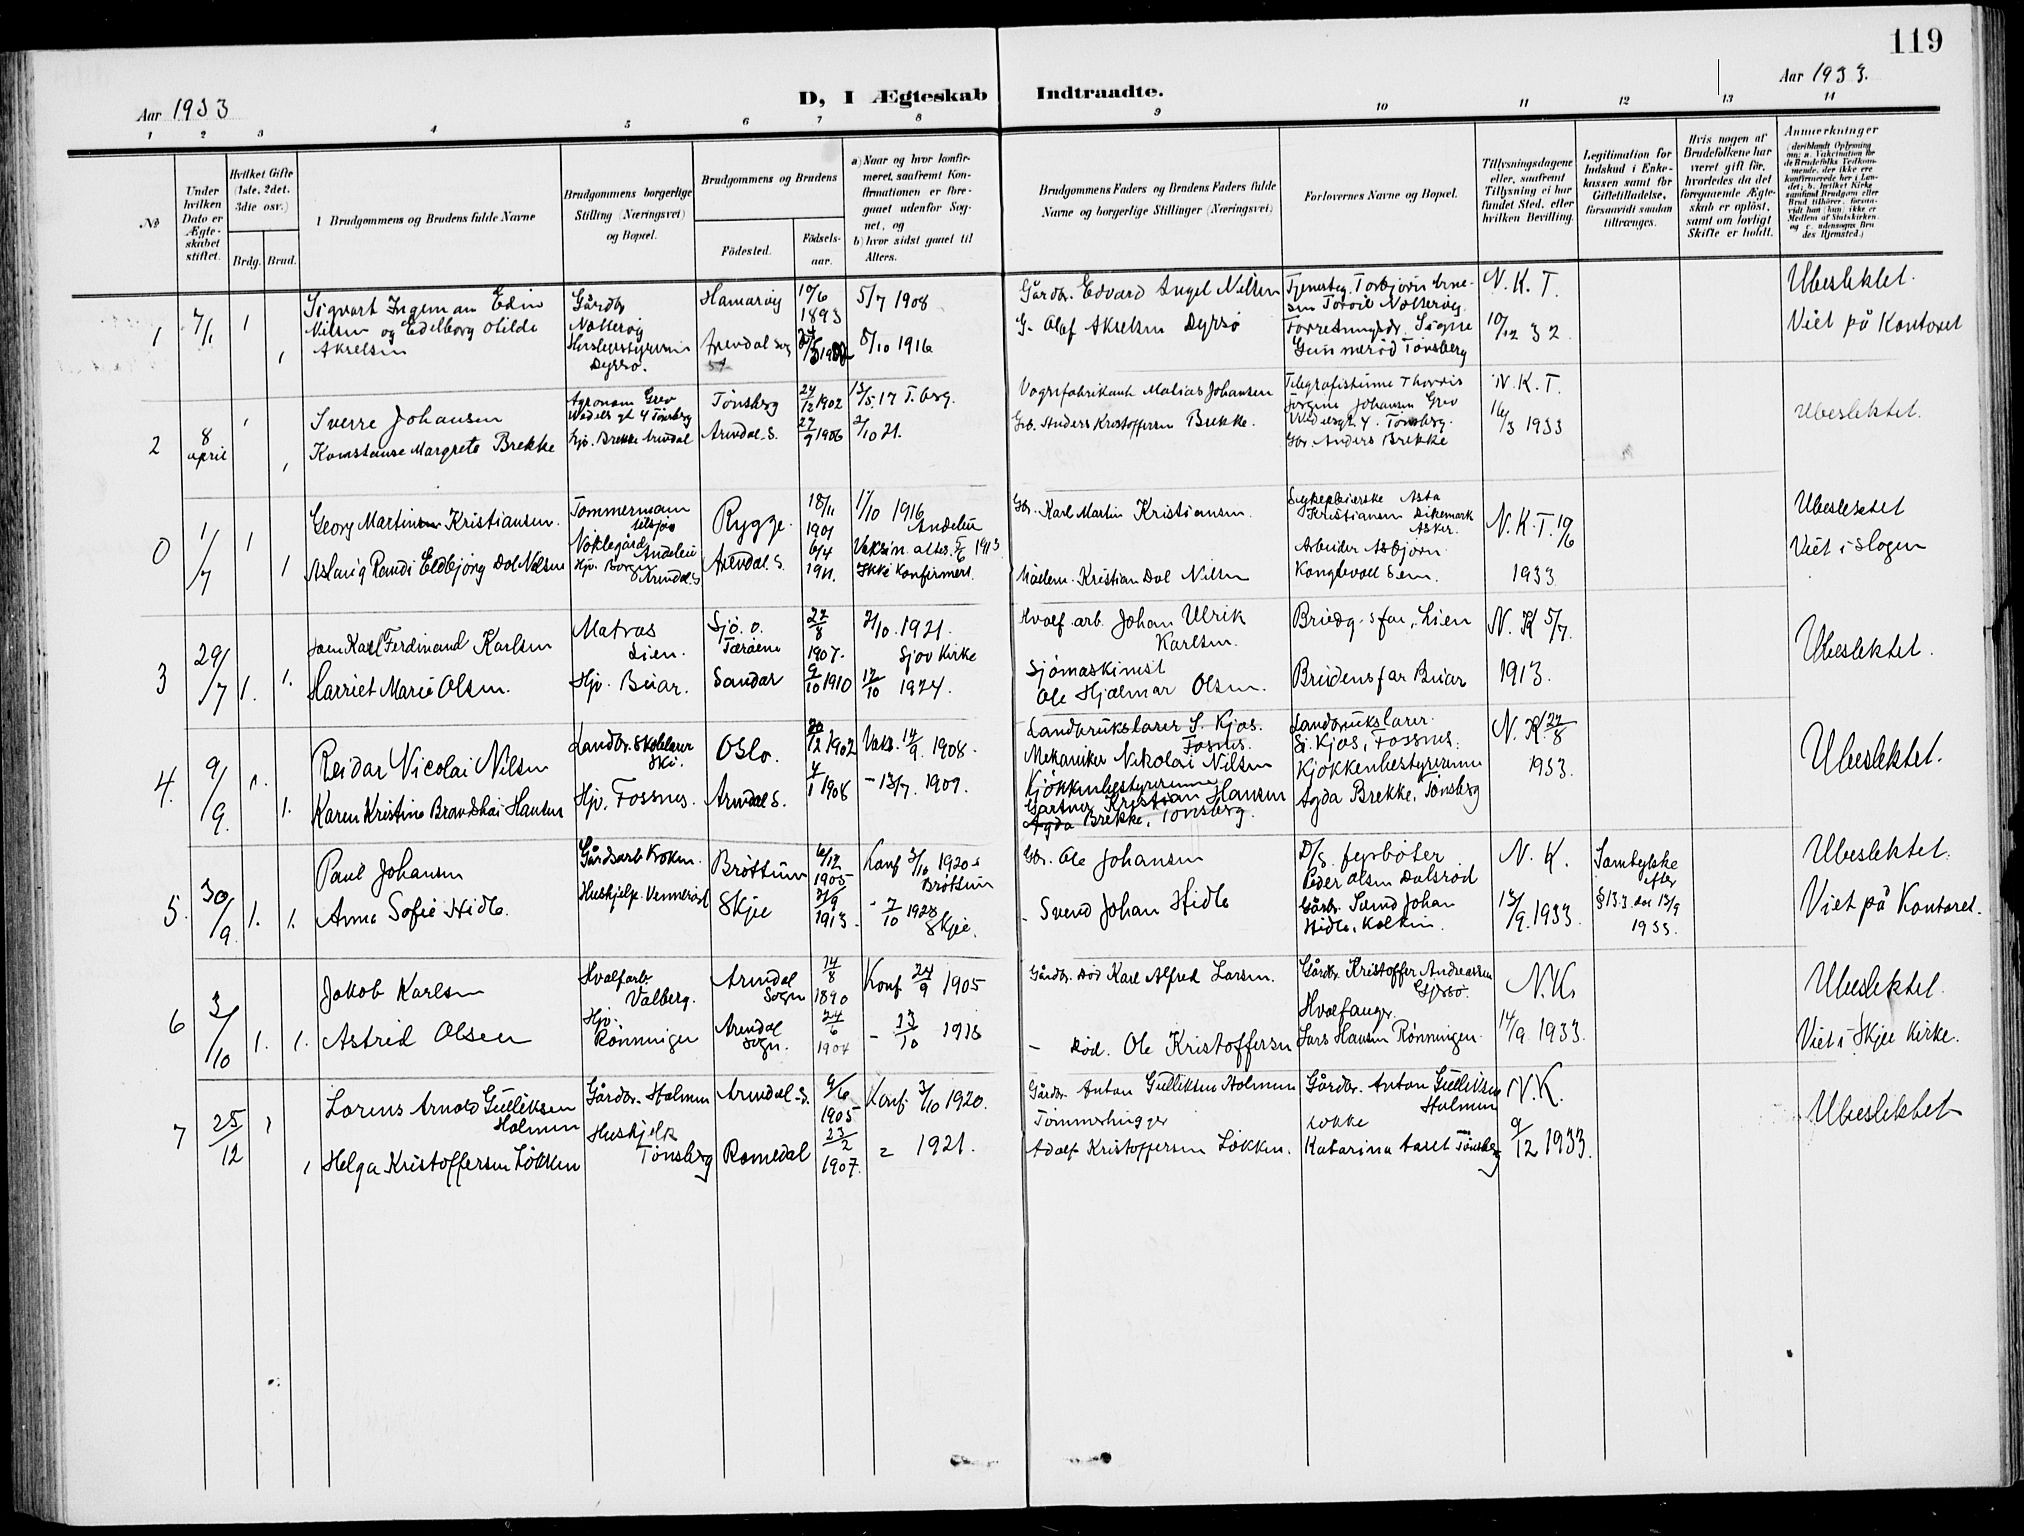 119
Aar 1933
D, I Ægteskab Indtraadte.
Aar 1933.
1 2 3 4 5 6 7 8 9 10 11 12 13 14
No
Under hvilken Dato er Ægteskabet stiftet.
Hvilket Gifte (1ste, 2det, 3die osv.)
Brdg. Brud.
1 Brudgommens og Brudens fulde Navne
Brudgommens borgerlige Stilling (Næringsvei) og Bopæl.
Brudgommens og Brudens
Födested.
Födselsaar.
a) Naar og hvor konfirmeret, saafremt Konfirmationen er foregaaet udenfor Sognet, og
b) hvor sidst gaaet til Alters.
Brudgommens Faders og Brudens Faders fulde Navne og borgerlige Stillinger (Næringsvei)
Forlovernes Navne og Bopæl.
Tillysningsdagene eller, saafremt Tillysning ei har fundet Sted, efter hvilken Bevilling.
Legitimation for Indskud i Enkekassen samt for Giftetilladelse, forsaavidt saadan tiltrænges.
Hvis nogen af Brudefolkene har været gift för, hvorledes da det foregaaende Ægteskab er oplöst, samt om lovligt Skifte er holdt.
Anmerkninger
1 7/1 1 1
Sigvart Ingeman Edin
Nilsen og Edelborg Otilde
Akselsen
Gårdbr
Nøtterøy
Husbestyrerinne
Dyrsø.
Hamarøy
Arendal sog
10/6
1893
5/7 1908
8/10 1916
Gårdbr. Edvard Angel Nilsen
G. Olaf Akselsen Dyrsø
Tjenesteg. Torbjørn Arne-
sen Torød Nøtterøy
Forretningsdr. Signe
Gunnerød Tønsberg
N. K. T.
10/12 32
Ubeslektet.
Viet på Kontoret
2 8 april 1 1
Sverre Johansen
Konstanse Margrete Brekke
Agronom Grev
Wedels gt 4 Tønsberg
Hjv. Brekke Arndal
Tønsberg
Arndal. S.
24/12 1902
27/9 1906
13/5.17 T.berg.
2/10 21.
Vognfabrikant Matias Johansen
Grb. Anders Kristoffersen Brekke.
Telegrafistinne Thordis
Jørgine Johansen Grev
Wedelsgt. 4. Tønsberg.
Gbr. Anders Brekke
N. K. T.
16/3 1933
Ubeslektet.
0 1/7 1 1
Georg Martinsen Kristiansen.
Aslaug Randi Eldbjørg Dal Nilsen
Tømmermann
tilsjøs
Nøklegård
Andebu
Hjv. Borgen
Arndal. S
Rygge.
Arendal. S.
18/11
1901
6/4
1911.
1/10 1916
Andebu
Vaksin. attes. 5/6 1913
Ikke konfirmert.
Gbr. Karl Martin Kristiansen.
Møllem. Kristian Dal Nilsen
Sykepleierske Asta
Kristiansen Dikemark
Asker.
Arbeider Asbjørn
Konglevoll Sem.
N. K. T. 19/6
1933
Ubeslektet
Viet i Slagen
3 29/7 1. 1.
Karl Ferdinand Karlsen
Harriet Marie Olsen.
Matros
Lien.
Hjv. Buar.
Sjö. o.
Færöene
Sandar
27/8
1907.
9/10 1910
2/10. 1921.
Sjov Kirke
12/10 1924.
Hvalf. arb. Johan Ulrik
Karlsen.
Sjömaskinist
Ole Hjalmar Olsen.
Brudg.s far, Lien
Brudens far Buar
N. K 5/7.
1913.
Ubeslektet.
4. 9/9. 1. 1.
Reidar Nicolai Nilsen
Karen Kristine Hansen
Landbr. Skolelærer
Ski.
Hjv. Fossnes.
Oslo.
Arndal S.
20/12 1902
4/1 1908
Vaks. 14/9. 1908.
- 13/7. 1909.
Landbrukslærer S. Kjos.
Fosnes.
Mekaniker Nikolai Nilsen
Kjökkenbestyrerinne
Gartner Kristian Hansen
Agda Brekke, Tønsberg.
Landbrukslærer
Si. Kjos, Fossnes.
Kjökkenbestyrerinne
Agda Brekke, Tønsberg
N. K. 22/8
1933.
Ubeslektet.
5. 30/9. 1. 1.
Paul Johansen
Anna Sofie Hidle.
Gårdsarb. Kroken.
Huskjelp. Vennerød
Brøttum
Skjee
6/12
1905
21/9
1913.
Konf 3/10 1920 i
Brøttum
- 7/10 1928
Skjee.
Gbr. Ole Johansen
- Svend Johan Hidle
D/S. fyrbøter
Peder Olsen Dalsrød
Gårbr. Svend Johan
Hidle, Kolkin.
N. K.
13/9. 1933.
Samtykke
efter
§ 13.3. das 13/9
1933.
Ubeslektet.
Viet på Kontoret.
6 3/10 1. 1.
Jakob Karlsen
Astrid Olsen
Hvalfarb.
Valberg.
Hjv.
Rønningen
Arendal
Sogn
Arendal
sogn.
14/8
1890
24/6
1904
Konf 24/9 1905
- 13/10 1918
Gårdbr. død Karl Alfred Larsen.
- død. Ole Kristoffersen
Gårdbr. Kristoffer Andreassen
Gjersø.
Hvalfanger.
Lars Hansen Rønningen.
N. K.
14/9. 1933.
Ubeslektet.
Viet i Skjee Kirke.
7 25/12 1 1
Lorens Arnold Gulliksen
Holmen
Helga Kristoffersen Løkken
Gårdbr. Holmen
Huskjelp
Tönsberg
Arendal. S.
Romedal
9/6
1905.
23/2
1907.
Konf. 3/10 1920.
= 1921.
Gårdbr. Anton Gulliksen Holmen
Tømmerhugger
Adolf Kristoffersen Løkken.
Gårdbr. Anton Gulliksen
Holmen
Katarina Tönsberg
N. K.
9/12 1933.
Ubeslektet